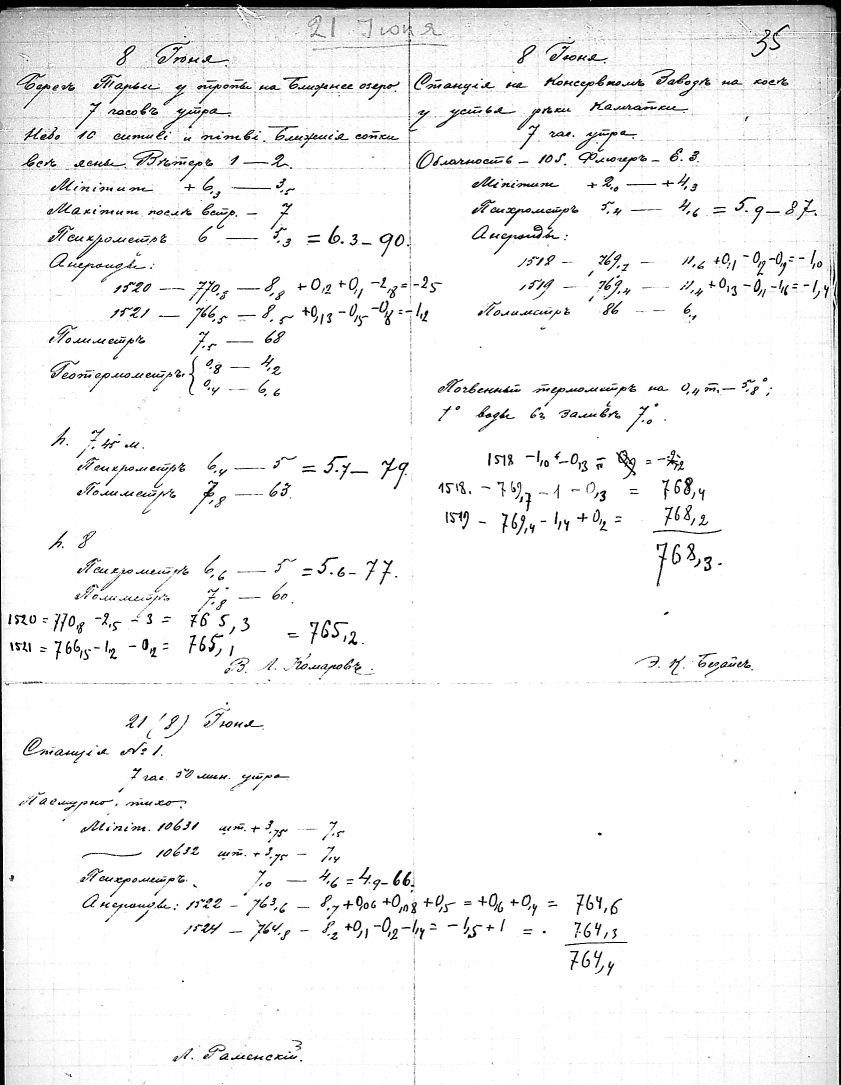 21 Іюня
35
8 Іюня.
Берегъ Тарьи у тропы на Ближнее озеро.
7 часовъ утра.
Небо 10 и . Ближнія сопки
всѣ ясны. Вѣтеръ 1 — 2.
Minimum +6,3 — 3,5
Maximum послѣ встр. — 7
Психрометръ 6 — 5,3 = 6.3 — 90.
Анероиды:
1520 — 770,8 — 8,8 +0,2 +0,1 -2,8 = -2,5
1521 — 766,5 — 8,5 +0,13 -0,5 -0,8 = -1,2
Полиметръ 7,5 — 68
Геотермометры { 0,8 — 4,2
0,4 — 6,6
h. 7,45 м.
Психрометръ 6,4 — 5 = 5.7 — 79.
Полиметръ 7,8 — 63.
h. 8
Психрометръ 6,6 — 5 = 5.6 — 77.
Полиметръ 7,8 — 60.
1520 = 770,8 -2,5 -3 = 765,3
1521 = 766,5 -1,2 -0,2 = 765,1 = 765,2.
В. Л. Комаровъ.
8 Іюня.
Станція на Консервномъ Заводѣ на косѣ
у устья рѣки Камчатки.
7 час. утра.
Облачность — 10S. Флюгеръ — В. 3.
Minimum +2,0 — +4,3
Психрометръ 5,4 — 4,6 = 5.9 — 87.
Анероиды:
1518 — 769,7 — 11,6 +0,1 -0,2 -0,9 = -1,0
1519 — 769,4 — 11,4 +0,13 -0,1 -1,6 = -1,4
Полиметръ 86 — 6,1
Почвенный термометръ на 0,4 m. — 5,8°;
t° воды въ заливѣ 7,0°.
1518 -1,0 -0,3 =
1518. — 769,7 -1 -0,3 = 768,4
1519 — 769,4 -1,4 +0,2 = 768,2
768,3.
Э. К. Безайсъ.
21 (8) Іюня.
Станція № 1.
7 час. 50 мин. утра
Пасмурно, тихо.
Minim. 10631 шт. +3,75 — 7,5
—— 10632 шт. +3,75 — 7,4
Психрометръ. 7,0 — 4,6 = 4.9 — 66.
Анероиды: 1522 — 763,6 — 8,7 +0,06 +0,08 +0,5 = +0,6 +0,4 = 764,6
1524 — 764,8 — 8,2 +0,1 -0,2 -1,4 = -1,5 +1 = 764,3
764,4
Л. Раменскій.